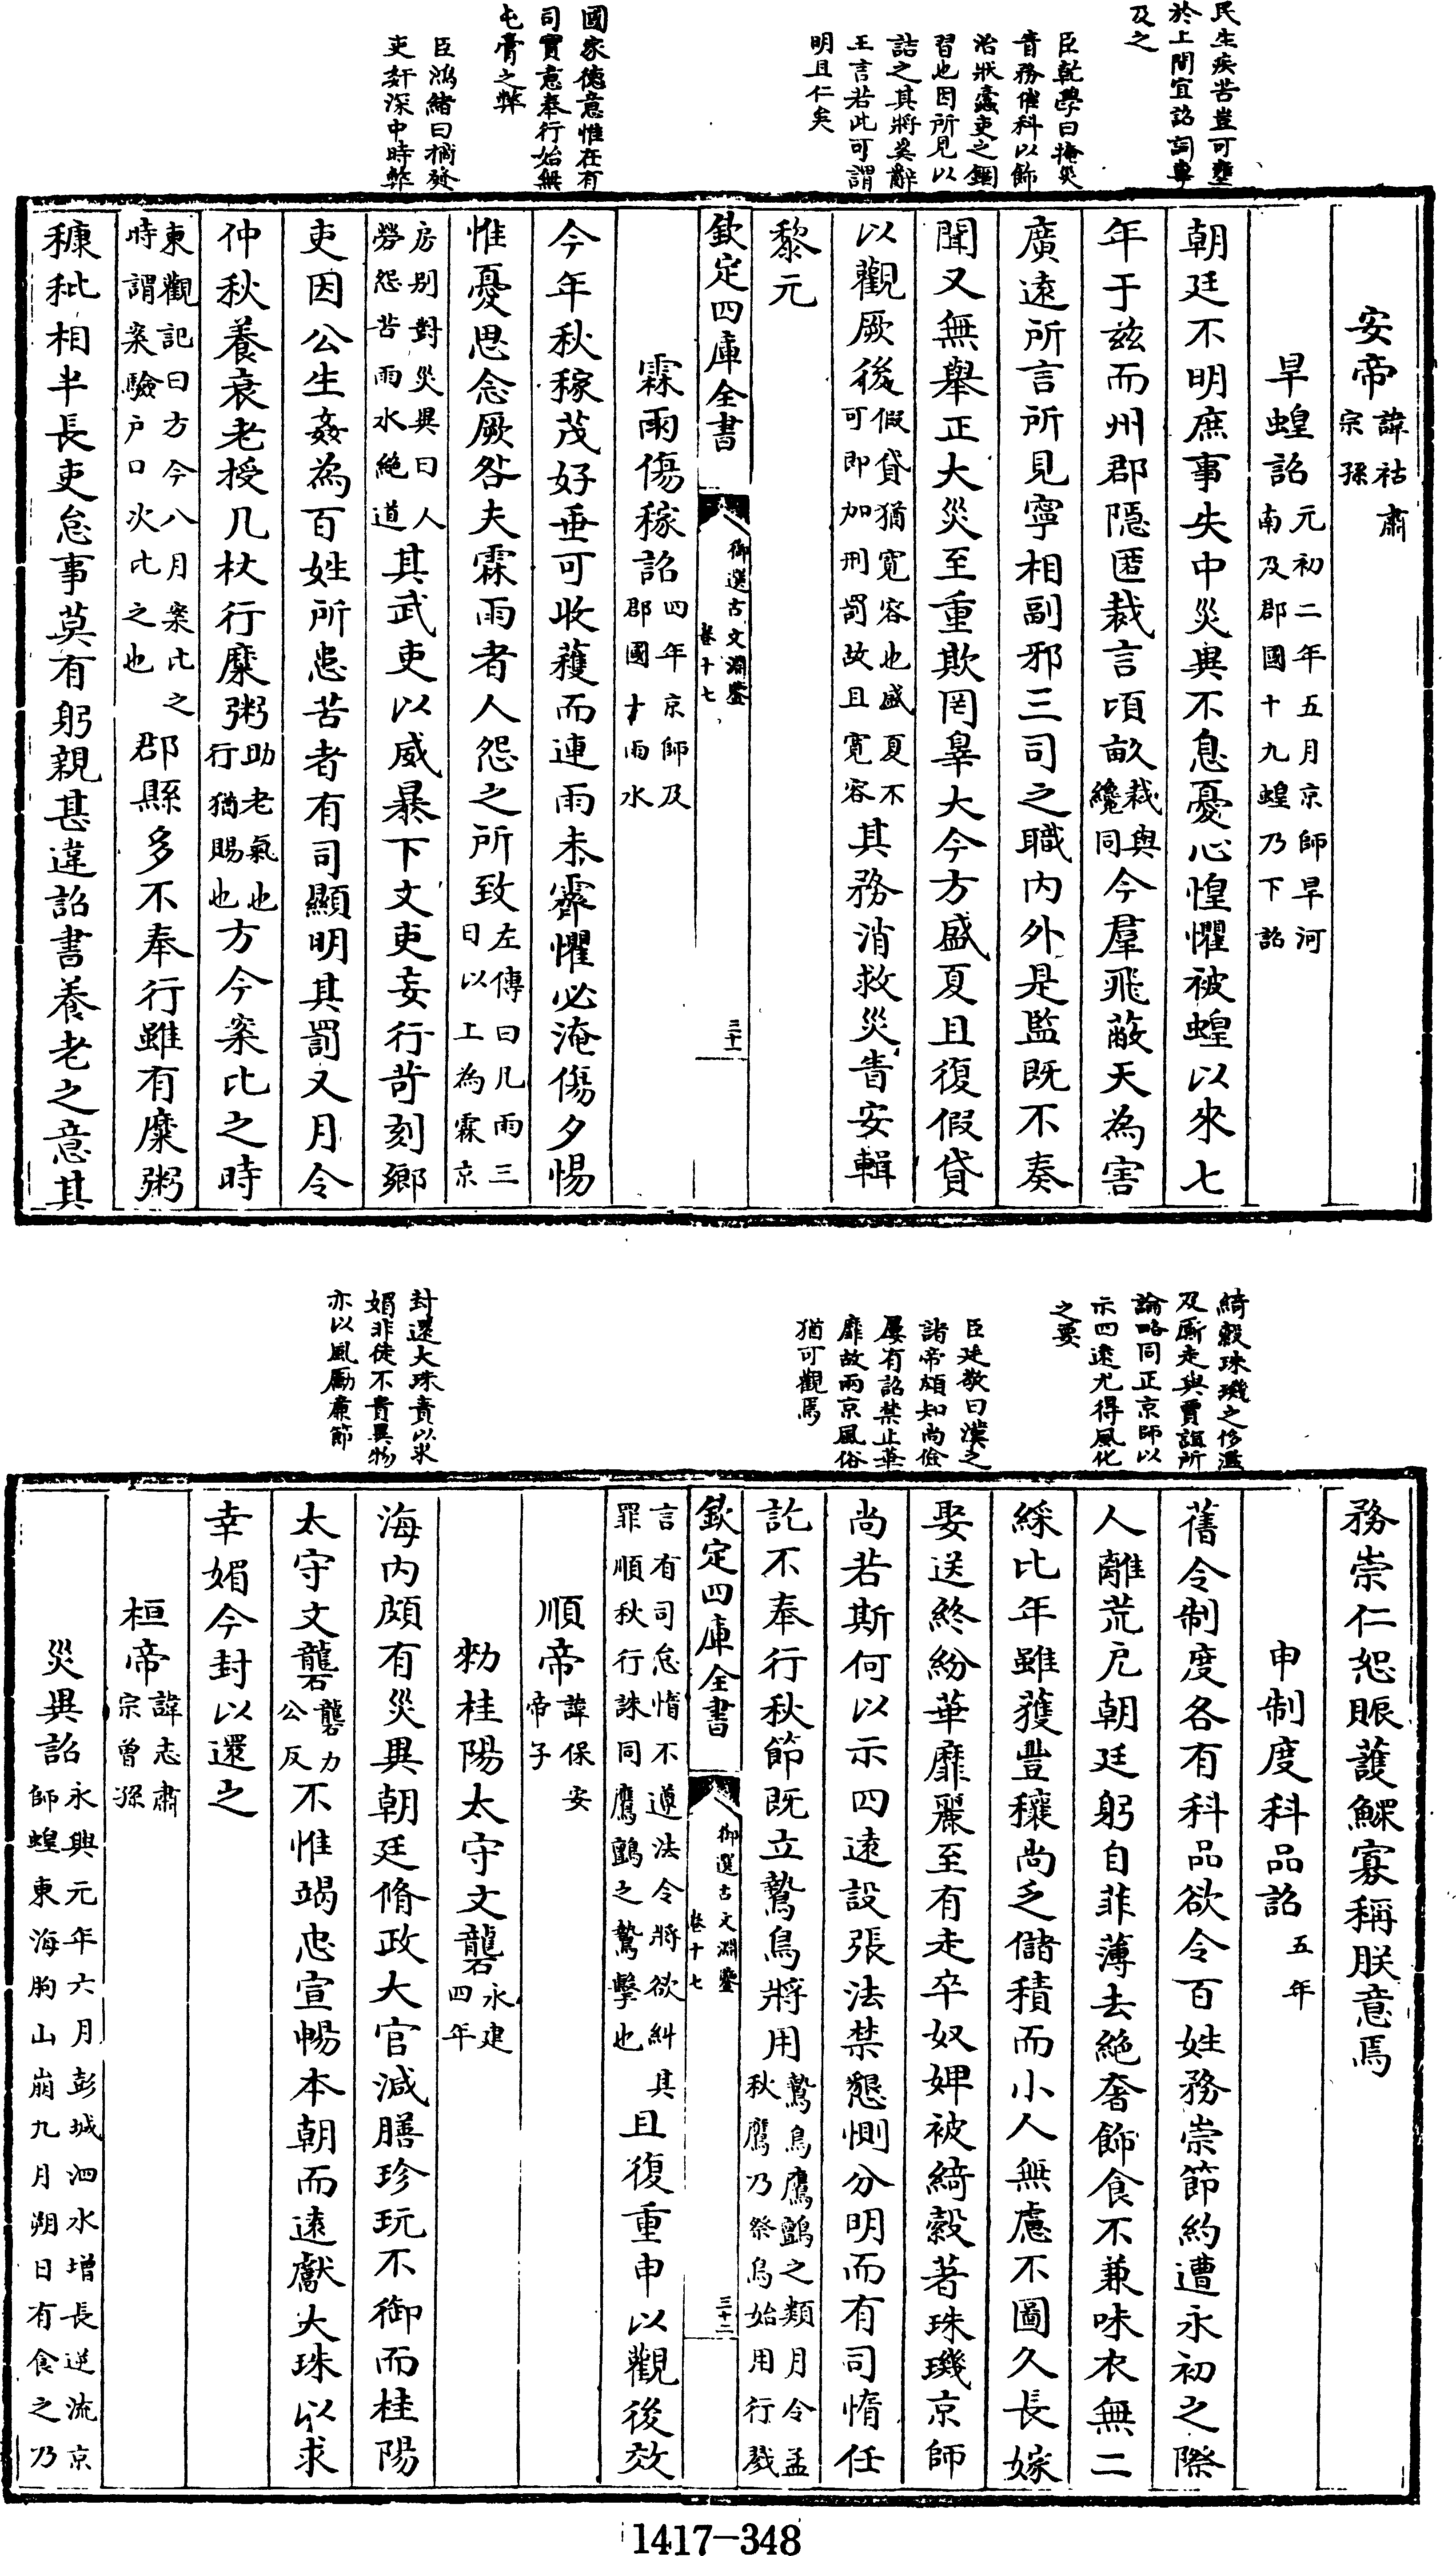 民生疾苦豈可壅
於上聞宜詔詞專
及之
臣乾學曰掩災
眚務催科以飾
治狀蠧吏之錮
習也因所見以
詰之其將奚辭
王言若此可謂
明且仁矣
國家德意惟在有
司實意奉行始無
屯膏之弊
臣鴻緒曰摘發
吏奸深中時弊
安帝諱祜肅
宗孫
旱蝗詔元初二年五月京師旱河
南及郡國十九蝗乃下詔
朝廷不明庶事失中災異不息憂心惶懼被蝗以來七
年于兹而州郡隱匿裁言頃畝裁與
纔同今羣飛蔽天為害
廣遠所言所見寧相副邪三司之職內外是監既不奏
聞又無舉正大災至重欺罔辠大今方盛夏且復假貸
以觀厥後假貸猶寛容也盛夏不
可即加刑罰故且寛容其務消救災眚安輯
黎元
欽定四庫全書
御選古文淵鑒
卷十七
三十一
霖雨傷稼詔四年京師及
郡國十雨水
今年秋稼茂好垂可收穫而連雨未霽懼必淹傷夕惕
惟憂思念厥咎夫霖雨者人怨之所致左傳曰凡雨三
日以上為霖京
房别對災異曰人
勞怨苦雨水絶道其武吏以威暴下文吏妄行苛刻鄉
吏因公生姦為百姓所患苦者有司顯明其罰又月令
仲秋養衰老授几杖行糜粥助老氣也
行猶賜也方今案比之時
東觀記曰方今八月案比之
時謂案驗户口次比之也郡縣多不奉行雖有糜粥
穅秕相半長吏怠事莫有躬親甚違詔書養老之意其
綺縠珠璣之侈濫
及厮走與賈誼所
論略同正京師以
示四逺尤得風化
之要
臣廷敬曰漢之
諸帝頗知尚儉
屢有詔禁止華
靡故兩京風俗
猶可觀焉
封還大珠責以求
媚非徒不貴異物
亦以風勵亷節
務崇仁恕賑䕶鰥寡稱朕意焉
申制度科品詔五年
舊令制度各有科品欲令百姓務崇節約遭永初之際
人離荒戹朝廷躬自菲薄去絶奢飾食不兼味衣無二
綵比年雖獲豐穰尚乏儲積而小人無慮不圖久長嫁
娶送終紛華靡麗至有走卒奴婢被綺縠著珠璣京師
尚若斯何以示四逺設張法禁懇惻分明而有司惰任
訖不奉行秋節既立鷙鳥將用鷙鳥鷹鸇之類月令孟
秋鷹乃祭鳥始用行戮
欽定四庫全書
御選古文淵鑒
卷十七
三十二
言有司怠惰不遵法令將欲糾其
罪順秋行誅同鷹鸇之鷙擊也且復重申以觀後效
順帝諱保安
帝子
勑桂陽太守文礱永建
四年
海内頗有災異朝廷脩政大官減膳珍玩不御而桂陽
太守文礱礱力
公反不惟竭忠宣暢本朝而逺獻大珠以求
幸媚今封以還之
桓帝諱志肅
宗曾孫
災異詔永興元年六月彭城泗水增長逆流京
師蝗東海朐山崩九月朔日有食之乃
1417-348